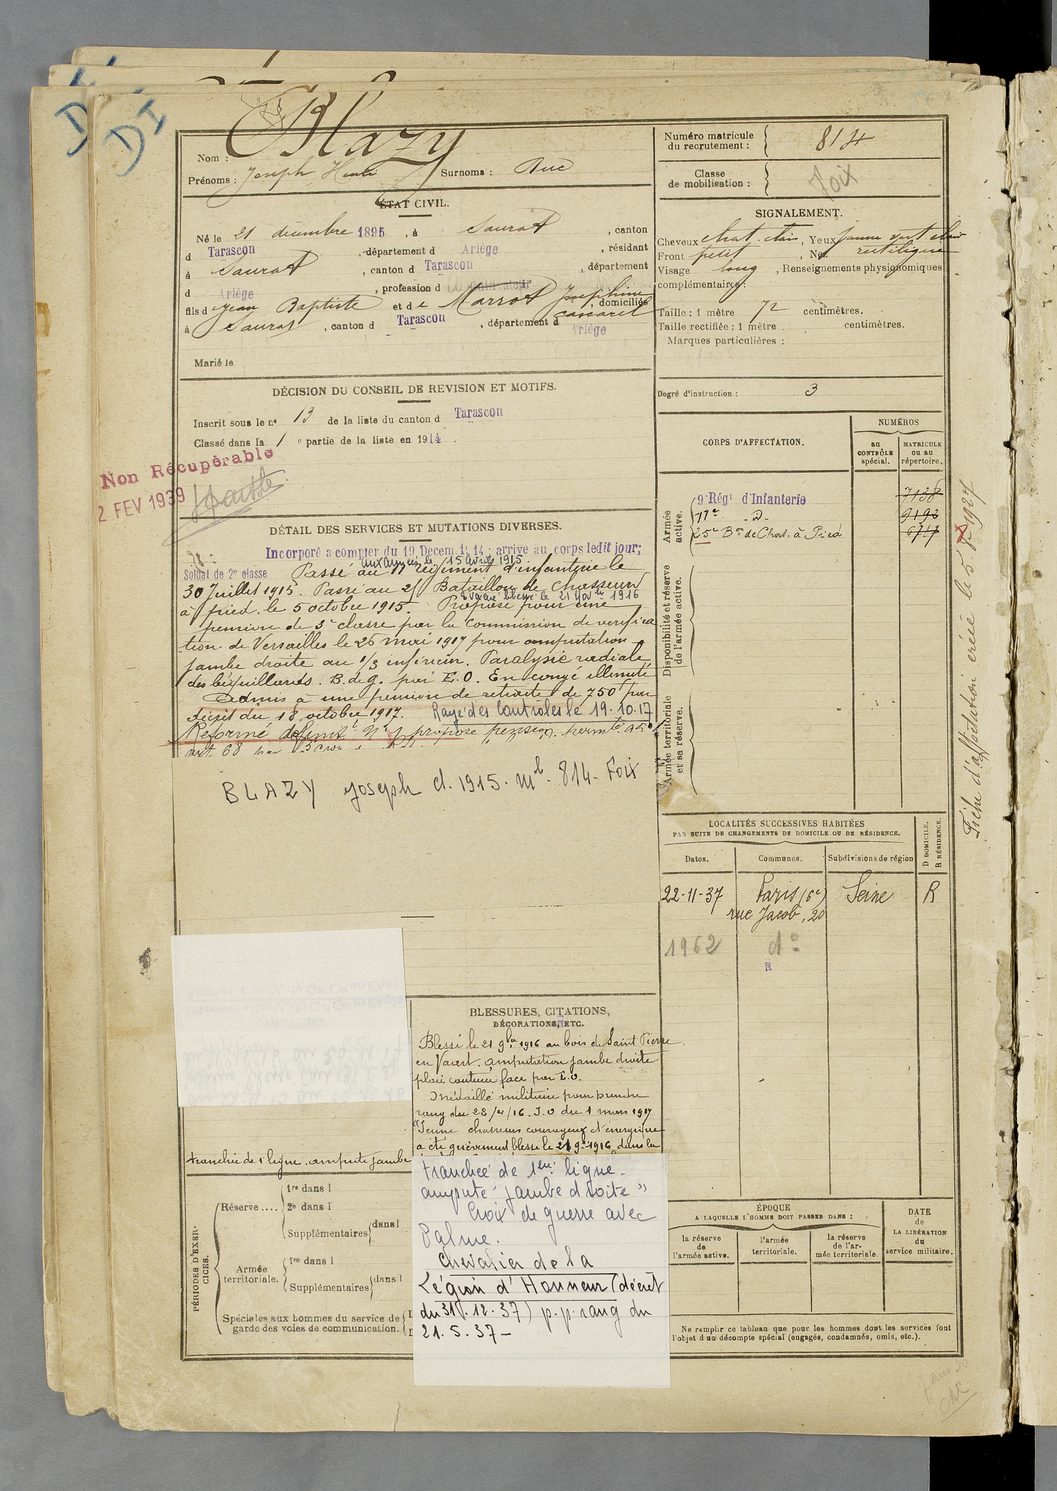 DI
DI
Blazy
Nom :
Prénoms : Joseph Henri Surnoms : Buc
Numéro matricule
du recrutement : 814
Classe
de mobilisation :
Foix
ÉTAT CIVIL.
Né le 21 décembre 1895, à Saurat, canton
d Tarascon, département d Ariège, résidant
à Saurat, canton d Tarascon, département
d Ariège, profession d
fils d Jean Baptiste et de Marrot Joséphine, domiciliés
à Saurat, canton d Tarascon, département d Ariège
Marié le
SIGNALEMENT.
Cheveux chat. clair, Yeux jaune vert clair
Front petit, Nez rectiligne
Visage long, Renseignements physionomiques
complémentaires :
Taille : 1 mètre 72 centimètres.
Taille rectifiée : 1 mètre centimètres.
Marques particulières :
Degré d'instruction : 3
DÉCISION DU CONSEIL DE REVISION ET MOTIFS.
Inscrit sous le n° 13 de la liste du canton d Tarascon
Classé dans la 1 e partie de la liste en 1914.
Non Récupérable
2 FEV 1939
DÉTAIL DES SERVICES ET MUTATIONS DIVERSES.
Incorporé à compter du 19 Decem. 1914 ; arrivé au corps ledit jour ;
aux armées le 15 avril 1915
Soldat de 2e classe Passé au 11 régiment d'infanterie le
30 Juillet 1915. Passé au 25 Bataillon de Chasseurs
Evacué blessé le 21 Novbre 1916
à pied le 5 octobre 1915. Proposé pour une
pension de 3e classe par la Commission de vérifica
tion de Versailles le 25 mai 1917 pour amputation
jambe droite au 1/3 inférieur. Paralysie radiale
des béquillards. B. de g. par E.O. En congé illimité
Admis à une pension de retraite de 750f par
décret du 18 octobre 1917. Rayé des Contrôles le 19.10.17
Réformé définitt N° 1 proposé pension permte
art. 68
BLAZY Joseph cl. 1915. Ml. 814. Foix
CORPS D'AFFECTATION.
NUMÉROS
au
CONTRÔLE
spécial.
MATRICULE
ou au
répertoire.
Armée
active.
9e Régt d'Infanterie 7138
11e -d- 9193
25e Bon de Chas. à Pied 6717
Disponibilité et réserve
de l'armée active.
Armée territoriale
et sa réserve.
Fiche d'affectation créée le 5 1927
LOCALITÉS SUCCESSIVES HABITÉES
PAR SUITE DE CHANGEMENTS DE DOMICILE OU DE RÉSIDENCE.
Dates. Communes. Subdivisions de région
D DOMICILE.
R RÉSIDENCE.
22-11-37 Paris (6e) Seine R
rue Jacob, 20
1962 do
BLESSURES, CITATIONS,
DÉCORATIONS, ETC.
Blessé le 21 9bre 1916 au bois de Saint Pierre
en Vaast. amputation jambe droite
plaie couture face par E.O.
Médaillé militaire pour prendre
rang du 28/11/16. J.O du 1 mars 1917
"Jeune chasseur courageux et énergique
a été grièvement blessé le 21 9bre 1916 dans la
tranchée de 1e ligne. amputé jambe
tranchée de 1ère ligne.
amputé jambe droite"
Croix de guerre avec
Palme.
Chevalier de la
Légion d'Honneur (décret
du 31.12.37) p.p. rang du
21.5.37 -
PÉRIODES D'EXER-
CICES.
Réserve ....
1re dans l
2e dans l
Supplémentaires dans l
Armée
territoriale.
1re dans l
Supplémentaires dans l
Spéciales aux hommes du service de
garde des voies de communication.
ÉPOQUE
A LAQUELLE L'HOMME DOIT PASSER DANS :
la réserve
de
l'armée active.
l'armée
territoriale.
la réserve
de l'ar-
mée territoriale.
DATE
de
LA LIBÉRATION
du
service militaire.
Ne remplir ce tableau que pour les hommes dont les services font
l'objet d'un décompte spécial (engagés, condamnés, omis, etc.).